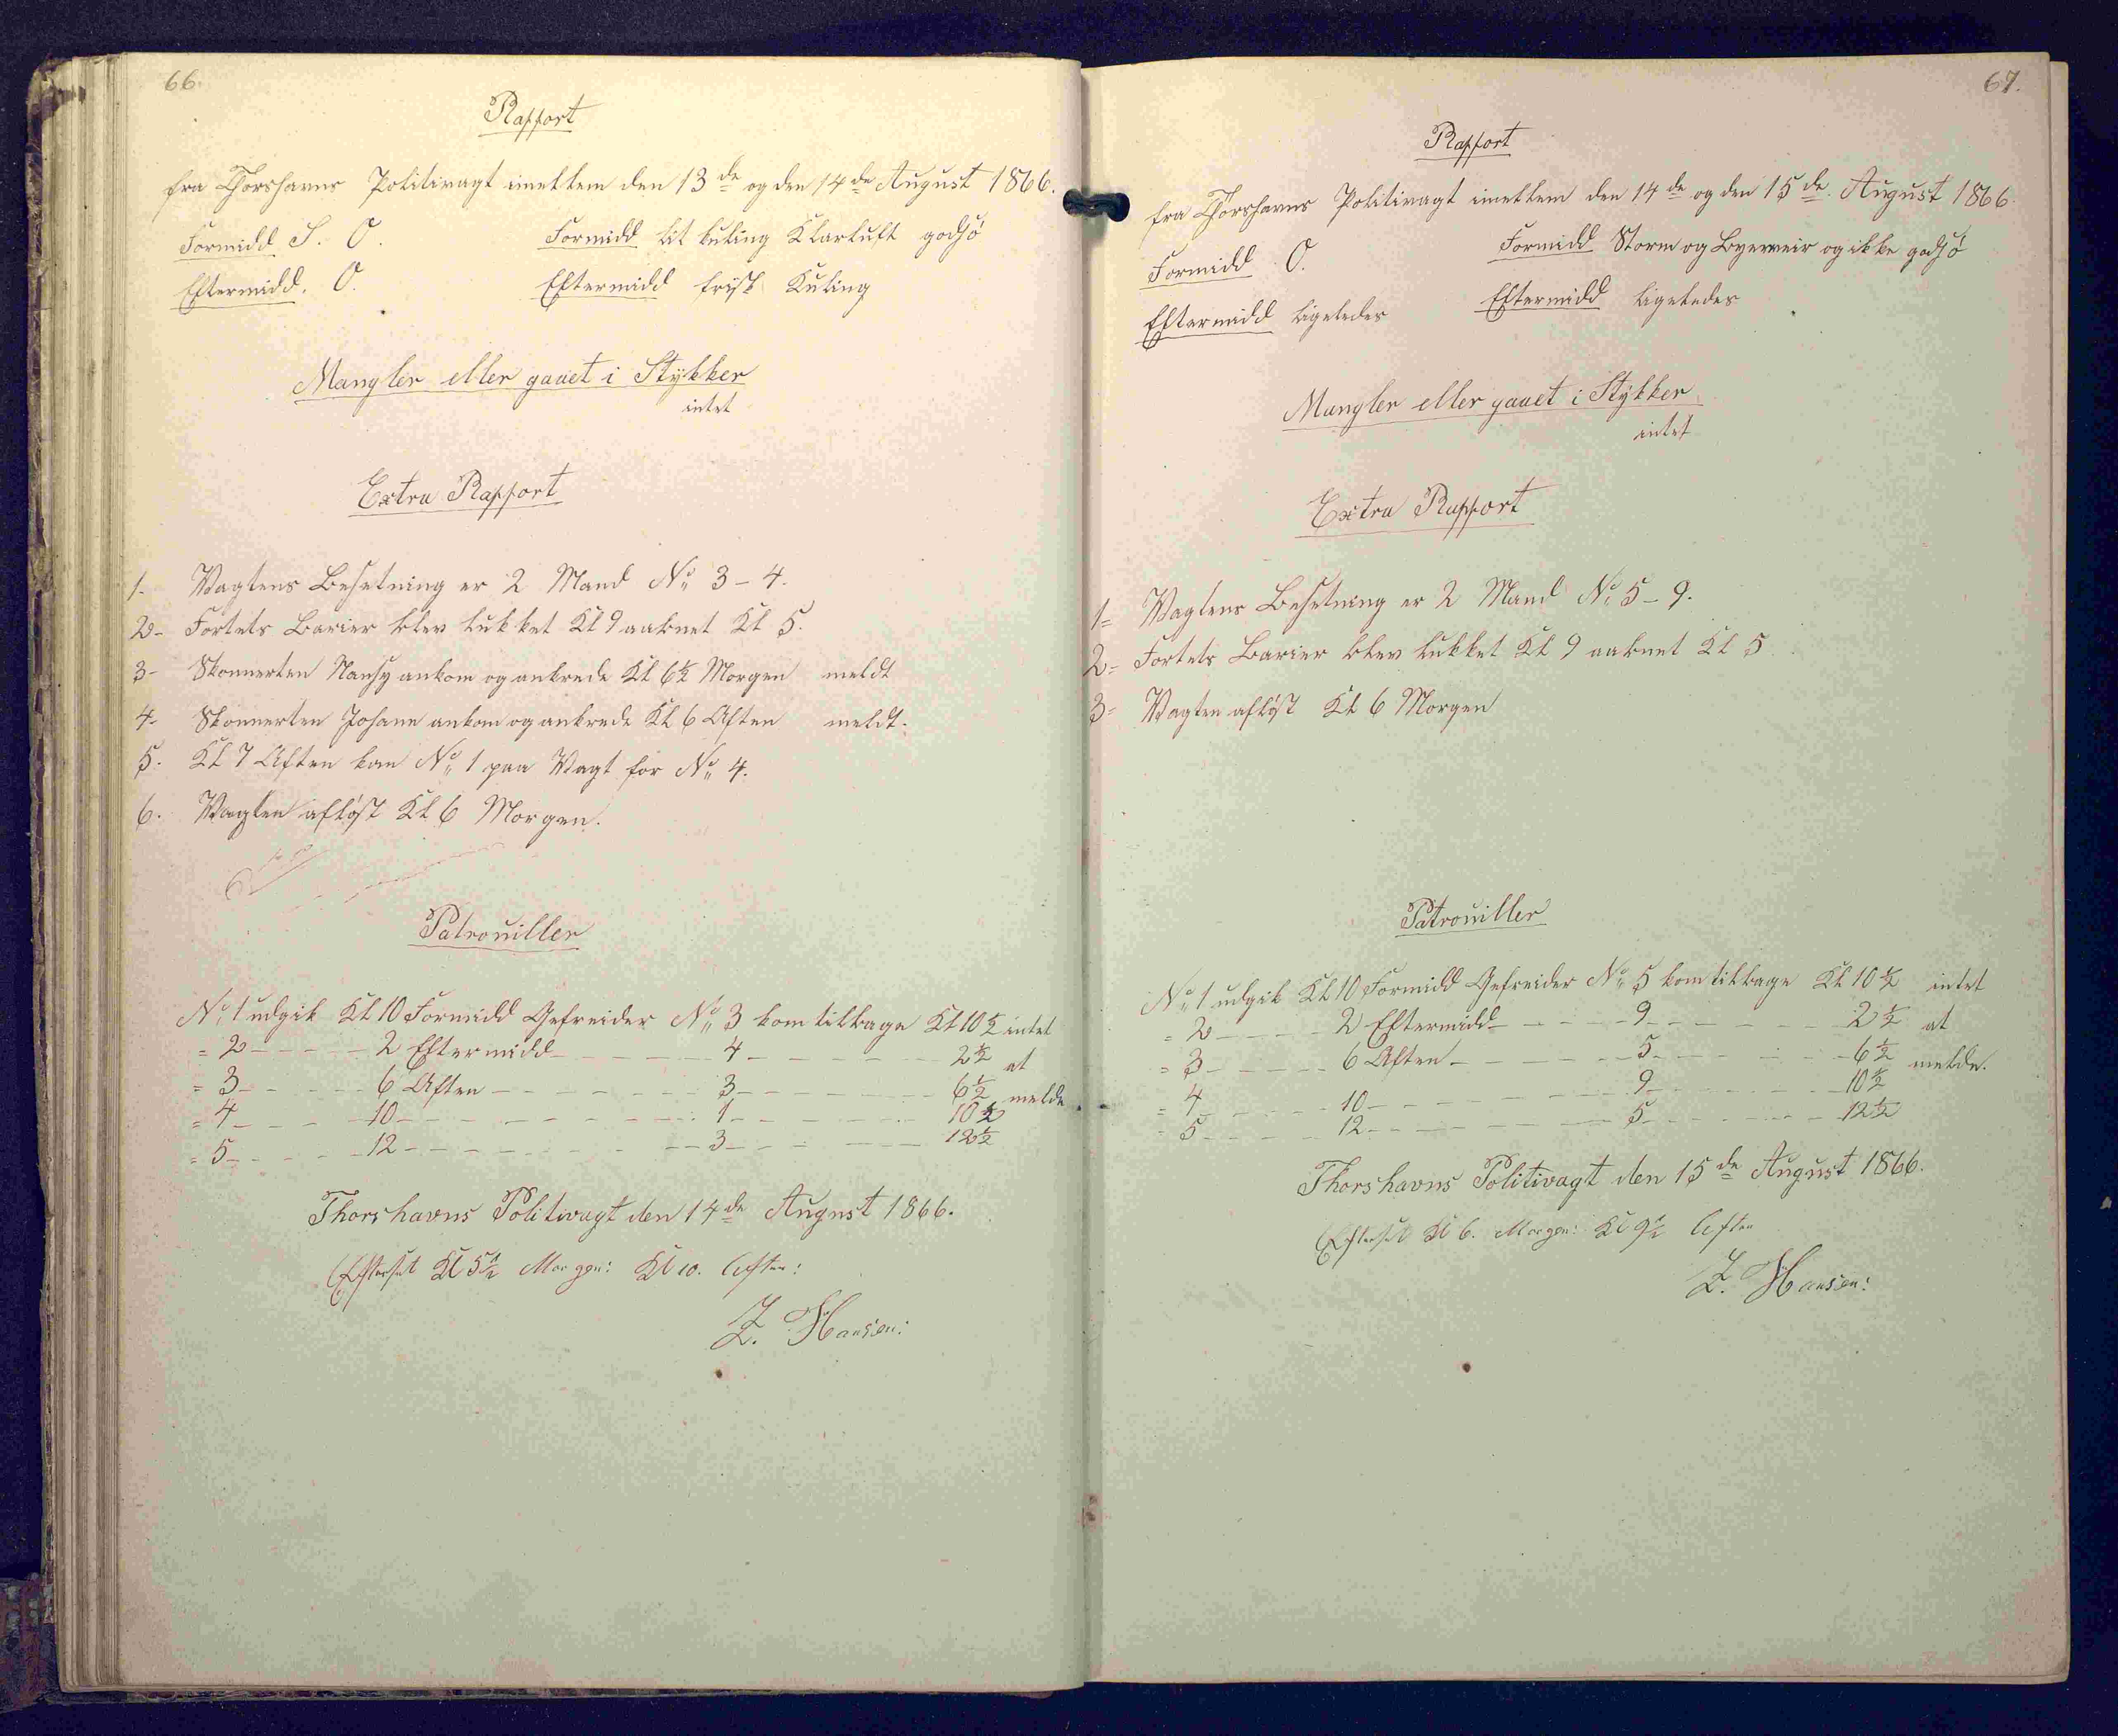 66.
Rapport
fra Thorshavns Politivagt imellem den 13de og den 14de August 1866.
Formidd S. O. Formidd lit kuling Klarluft godsö
Eftermidd. O. Eftermidd frisk Kuling
Mangler eller gaaet i Stykker
intet
Extra Rapport
1- Vagtens Besetning er 2 Mand No 3-4.
2- Fortets Barier blev lukket Kl 9 aaknet Kl 5.
3- Skonnerten Nansy ankom og ankrede Kl 6½ Morgen meldt
4- Skonnerten Johane ankom og ankrede Kl 6 Aften meldt.
5. Kl 7 Aften kom No 1 paa Vagt for No 4.
6. Vagten aflöst Kl 6 Morgen.
Patrouiller
No 1 udgik Kl 10 Formidd Gefreider No 3 kom tilbage Kl 10½ intet
= 2 - - - - 2 Eftermidd - - - - 4 - - - - 2½ at
= 3 - - - - 6 Aften - - - - 3 - - - - 6½ melde
= 4 - - - - 10 - - - - 1 - - - - 10½
= 5 - - - - 12 - - - - 3 - - - - 12½
Thorshavns Politivagt den 14de August 1866.
Efterset Kl 5½ Morgen: Kl 10. Aften:
Z. Hansen:
67.
Rapport
fra Thorshavns Politivagt imellem den 14de og den 15de August 1866.
Formidd O. Formidd Storm og Byerveir og ikke godsö
Eftermidd ligeledes Eftermidd ligeledes
Mangler eller gaaet i Stykker
intet
Extra Rapport
1= Vagtens Besetning er 2 Mand No 5-9.
2= Fortets Barier blev lukket Kl 9 aaknet Kl 5
3= Vagten aflöst Kl 6 Morgen
Patrouiller
No 1 udgik Kl 10 Formidd Gefreider No 5 kom tilbage Kl 10½ intet
= 2 - - - - 2 Eftermidd - - - - 9 - - - - 2½ at
= 3 - - - - 6 Aften - - - - 5 - - - - 6½ melde.
= 4 - - - - 10 - - - - 9 - - - - 10½
= 5 - - - - 12 - - - - 5 - - - - 12½
Thorshavns Politivagt den 15de August 1866.
Efterset Kl 6. Morgen: Kl 9½ Aften
Z. Hansen: